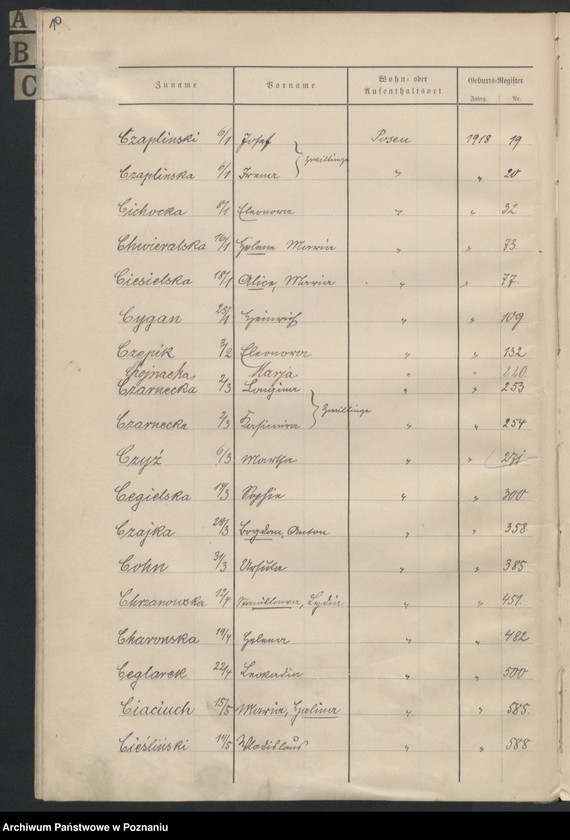 A
B
C
10
Zuname Vorname Wohn- oder Aufenthaltsort Geburts-Register
Jahrg. Nr.
Czaplinski 6/1 Josef Posen 1918 19
Zwillinge
Czaplinska 6/1 Irena " " 20
Cichocka 8/1 Eleonora " " 32
Chwieralska 16/1 Helena Maria " " 73
Ciesielska 18/1 Alice, Maria " " 77
Cygan 25/1 Heinrich " " 109
Czepik 3/2 Eleonora " " 132
Marja " " 220
Czarnecka 2/3 Longina " " 253
Zwillinge
Czarnecka 2/3 Kasimira " " 254
Czyż 6/3 Martha " " 271
Cegielska 14/3 Sophie " " 300
Czajka 28/3 Bogdan, Anton " " 358
Cohn 31/3 Ursula " " 385
Chrzanowska 12/4 Stanislawa, Lydia " " 451
Charonska 19/4 Helena " " 482
Ceglarek 22/4 Leokadia " " 500
Ciaciuch 15/5 Maria, Halina " " 585
Cieśliński 14/5 Wladislaus " " 588
Archiwum Państwowe w Poznaniu